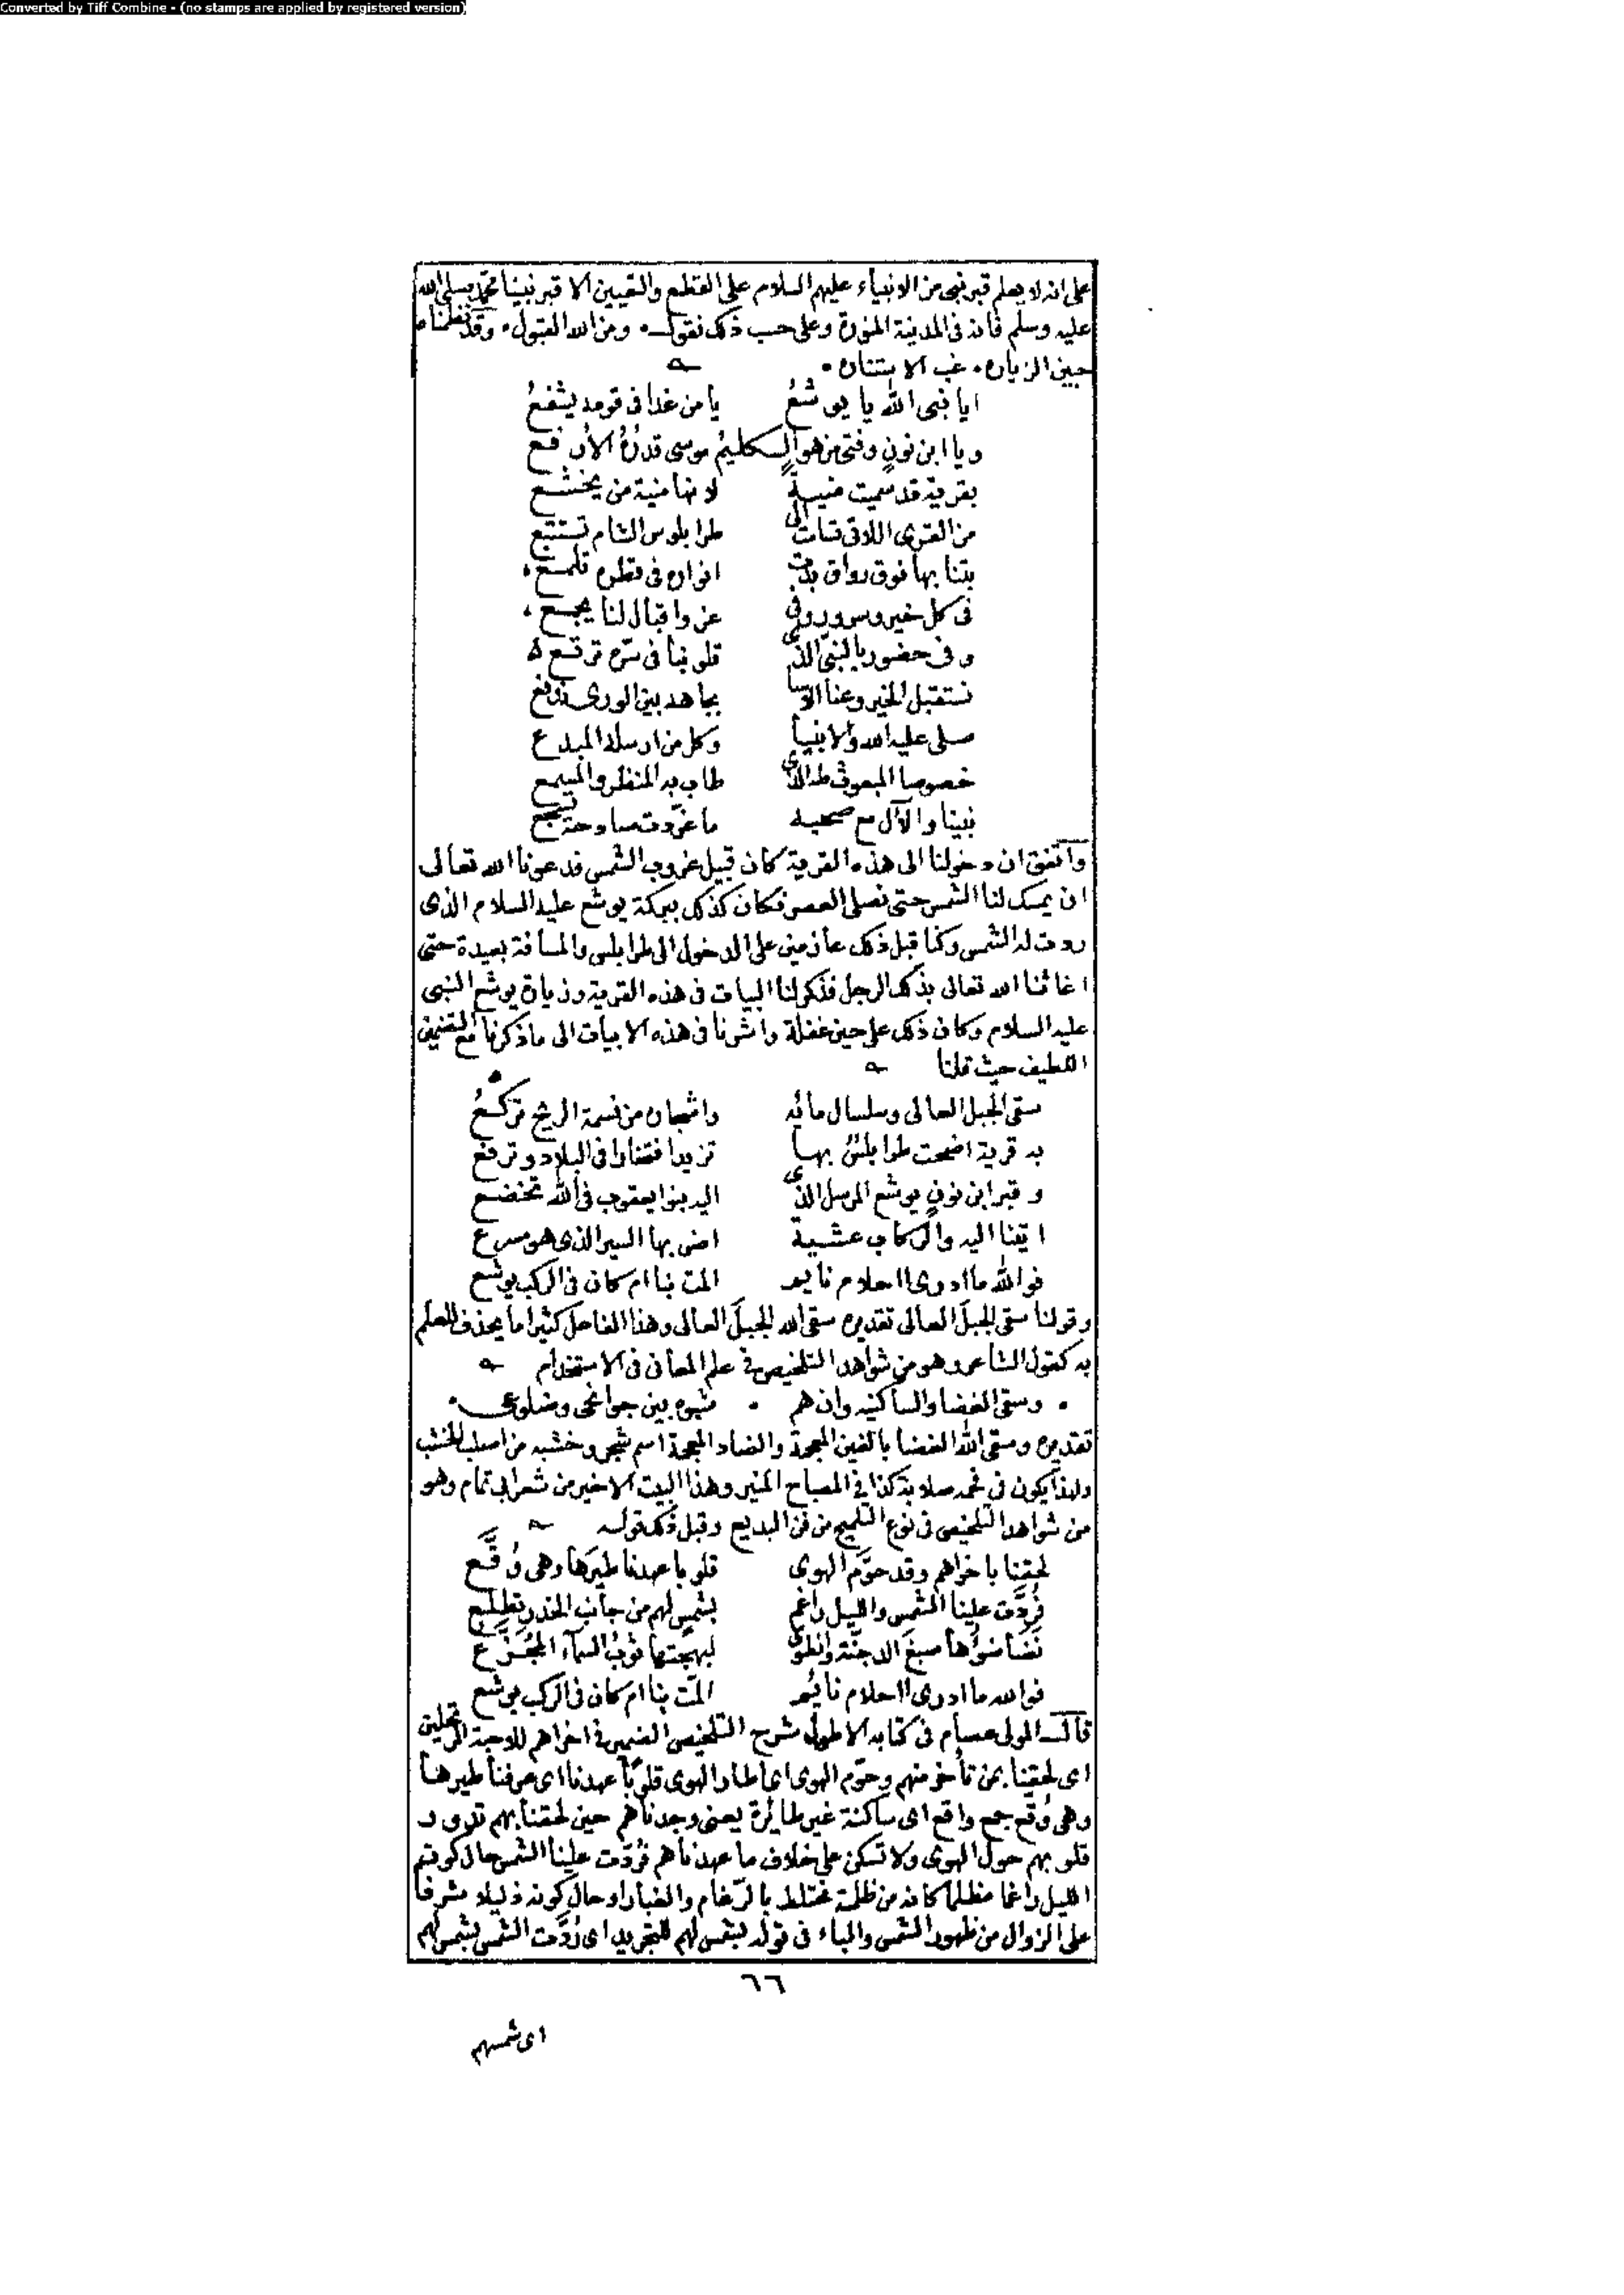 Converted by Tiff Combine - (no stamps are applied by registered version)
على انه لا يعلم قبر نبي من الانبياء عليهم السلام على القطع والتعيين الا قبر نبينا محمد صلى الله
عليه وسلم فانه فى المدينة المنورة وعلى حسب ذلك نقول ومن الله القبول وقد نظمنا
حين الزياره غب الاستناره
ايا نبى الله يا يوشع يا من غدا فى قومه يشفع
ويا ابن نون وفتى من هو الكليم موسى قدره الارفع
بقرية قد سميت منية لانها منية من يخشع
من القرى اللاتى تسامت الى طرابلوس الشام تستتبع
بتنا بها فوق رواق بدت انواره فى قطره تلمع
فى كل خير وسرور وفى عز واقبال لنا يجمع
وفى حضور بالنبى الذى قلوبنا فى سره ترتع
نستقبل الخير وعنا الاسا بجاهه بين الورى ندفع
صلى عليه الله والانبيا وكل من ارسله المبدع
خصوصا المبعوث طه الذى طاب به المنظر والمسمع
نبينا والآل مع صحبه ما غردت صادحة تسجع
واتفق ان دخولنا الى هذه القرية كان قبيل غروب الشمس فدعونا الله تعالى
ان يمسك لنا الشمس حتى نصلى العصر فكان كذلك ببركة يوشع عليه السلام الذى
ردت له الشمس وكنا قبل ذلك عازمين على الدخول الى طرابلس والمسافة بعيدة حتى
اغاثنا الله تعالى بذلك الرجل فذكر لنا البيات فى هذه القرية وزيارة يوشع النبى
عليه السلام وكان ذلك على حين غفلة واشرنا فى هذه الابيات الى ما ذكرنا مع التضمين
اللطيف حيث قلنا
سقى الجبل العالى وسلسال مائه واشجاره من نسمة الريح تركع
به قرية اضحت طرابلس بها تزيد افتخارا فى البلاد وترفع
وقبر ابن نون يوشع المرسل الذى اليه بنوا يعقوب فى الله تخضع
اتينا اليه والركاب عشية اضى بها السير الذى هو مسرع
فوالله ما ادرى ااحلام نايم المت بنا ام كان فى الركب يوشع
وقولنا سقى الجبل العالى تقديره سقى الله الجبل العالى وهذا الفاعل كثيرا ما يحذف للعلم
به كقول الشاعر وهو من شواهد التلخيص فى علم المعانى فى الاستخدام
وسقى الغضا والساكنيه وان هم شبوه بين جوانحى وضلوعى
تقديره وسقى الله الغضا بالغين المعجمة والضاد المعجمة اسم شجر وخشبه من اصلب الخشب
ولهذا يكون فى فحمه صلابة كذا فى المصباح المنير وهذا البيت الاخير من شعر ابى تمام وهو
من شواهد التلخيص فى نوع التلميح من فن البديع وقبل ذلك قوله
لحقنا باخراهم وقد حوم الهوى قلوبا عهدنا طيرها وهى وقع
فردت علينا الشمس والليل راغم بشمس لهم من جانب الخدر تطلع
نضا ضوأها صبغ الدجنة وانطوى لبهجتها ثوب السماء المجزع
فوالله ما ادرى ااحلام نايم المت بنا ام كان فى الركب يوشع
قال المولى عصام فى كتابه الاطول شرح التلخيص الضمير فى اخراهم للاحبة المرتحلين
اى لحقنا بمن تأخر منهم وحوم الهوى اى اطار الهوى قلوبا عهدنا اى عرفنا طيرها
وهى وقع جمع واقع اى ساكنة غير طايرة يعنى وجدناهم حين لحقنا بهم تدور
قلوبهم حول الهوى ولا تسكن على خلاف ما عهدناهم فردت علينا الشمس حال كون
الليل راغما مظلما كانه من ظلمة مختلط بالرغام والغبار او حال كونه ذليلا مشرفا
على الزوال من ظهور الشمس والباء فى قوله بشمس لهم للتجريد اى ردت الشمس بشمس لهم
٦٦
اى شمسهم